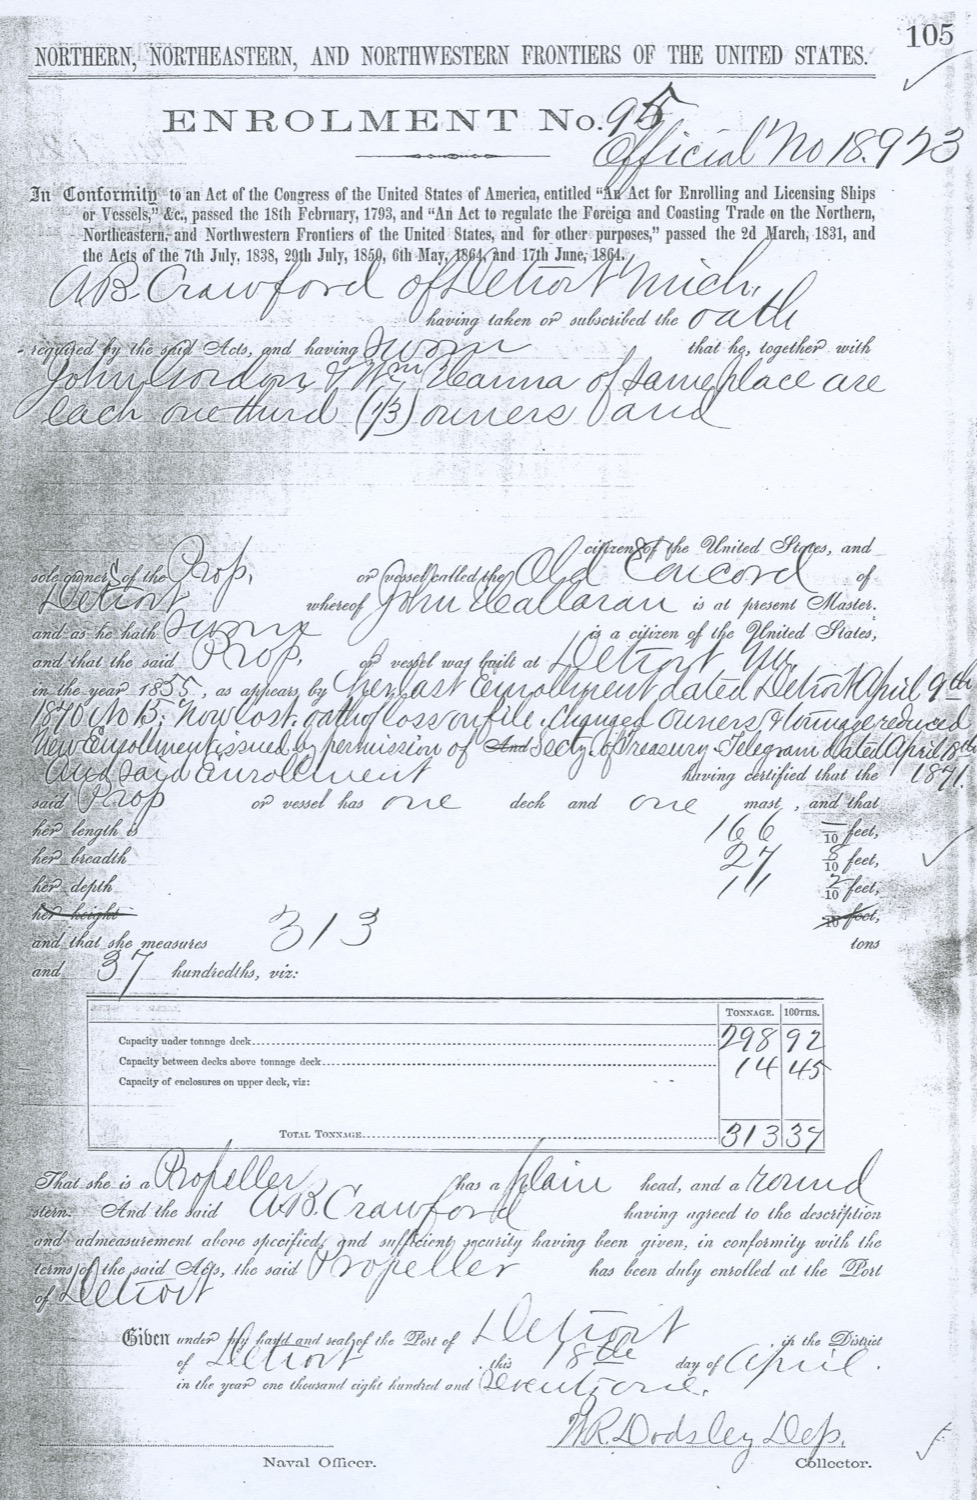 105
NORTHERN, NORTHEASTERN, AND NORTHWESTERN FRONTIERS OF THE UNITED STATES.
ENROLMENT No. 95
Official No 18.923
In Conformity to an Act of the Congress of the United States of America, entitled "An Act for Enrolling and Licensing Ships
or Vessels," &c., passed the 18th February, 1793, and "An Act to regulate the Foreign and Coasting Trade on the Northern,
Northeastern, and Northwestern Frontiers of the United States, and for other purposes," passed the 2d March, 1831, and
the Acts of the 7th July, 1838, 29th July, 1850, 6th May, 1864, and 17th June, 1864.
A.B. Crawford of Detroit Mich,
having taken or subscribed the oath
required by the said Acts, and having sworn that he, together with
John Gordon, & Wm Hanna of same place are
each one third (1/3) owners and
citizens of the United States, and
sole owners of the Prop. or vessel called the Old Concord of
Detroit whereof John is at present Master.
and as he hath sworn is a citizen of the United States,
and that the said Prop. or vessel was built at Detroit
in the year 1855, as appears by her last Enrollment dated Detroit April 9th
1870 No Now lost. oath of loss on file. Changed Owners & tonnage reduced
New Enrollment issued by permission of And Secty. of Treasury Telegram dated April 18th
1871.
And said Enrollment having certified that the
said Prop or vessel has one deck and one mast, and that
her length is 166 – /10 feet,
her breadth 27 8/10 feet,
her depth 11 2/10 feet,
her height /10 feet,
and that she measures 313 tons
and 37 hundredths, viz:
TONNAGE. 100THS.
Capacity under tonnage deck 298 92
Capacity between decks above tonnage deck 14 45
Capacity of enclosures on upper deck, viz:
TOTAL TONNAGE 313 37
That she is a Propeller has a plain head, and a round
stern. And the said A.B. Crawford having agreed to the description
and admeasurement above specified, and sufficient security having been given, in conformity with the
terms of the said Acts, the said Propeller has been duly enrolled at the Port
of Detroit
Given under my hand and seal of the Port of Detroit in the District
of Detroit this 18th day of April.
in the year one thousand eight hundred and Seventy one.
W.R. Dodsley Dep.
Naval Officer. Collector.